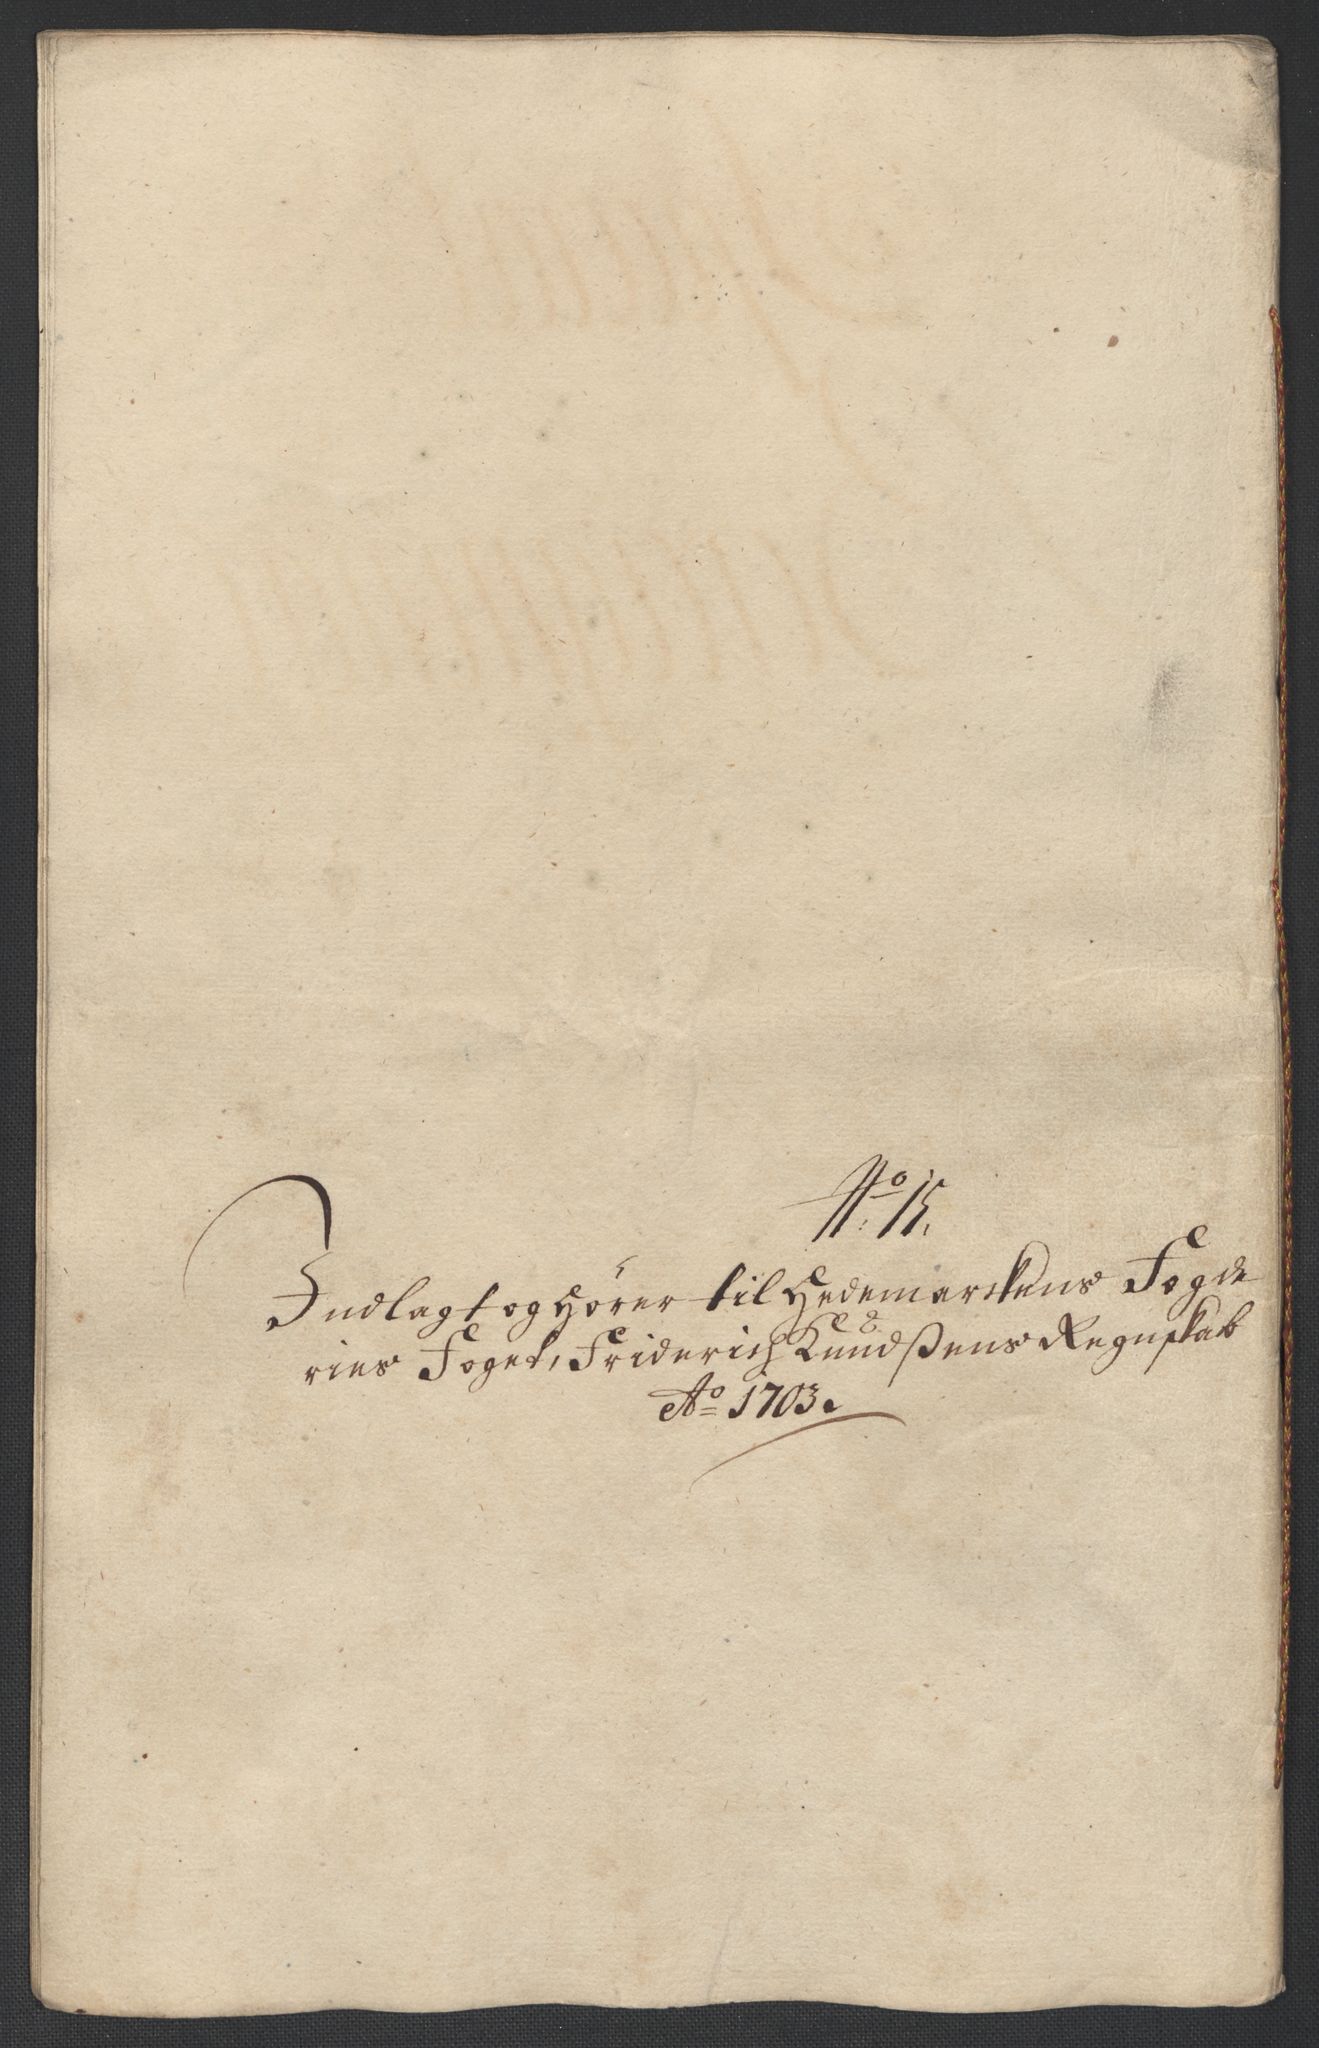 No: 15.
Indlagt og hører til Hedemarckens Fogde
ries Foget, Friderich Knudsβens Regnskab
Ao 1703.